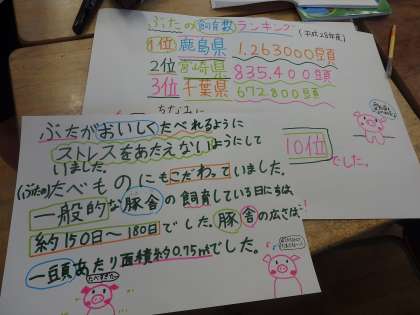 ぶたの飼育数ランキング(平成28年度)
1位鹿島県 1,263000頭
2位宮崎県 835,400頭
3位千葉県 672800頭
ちなみに
10位でした。
ぶたがおいしくたべれるように
ストレスをあたえないようにして
いました。
(ぶたの)たべものにもこだわっていました。
一般的な豚舎の飼育している日にちは、
約150日〜180日でした。豚舎の広さは、
一頭あたり面積約0.75㎡でした。